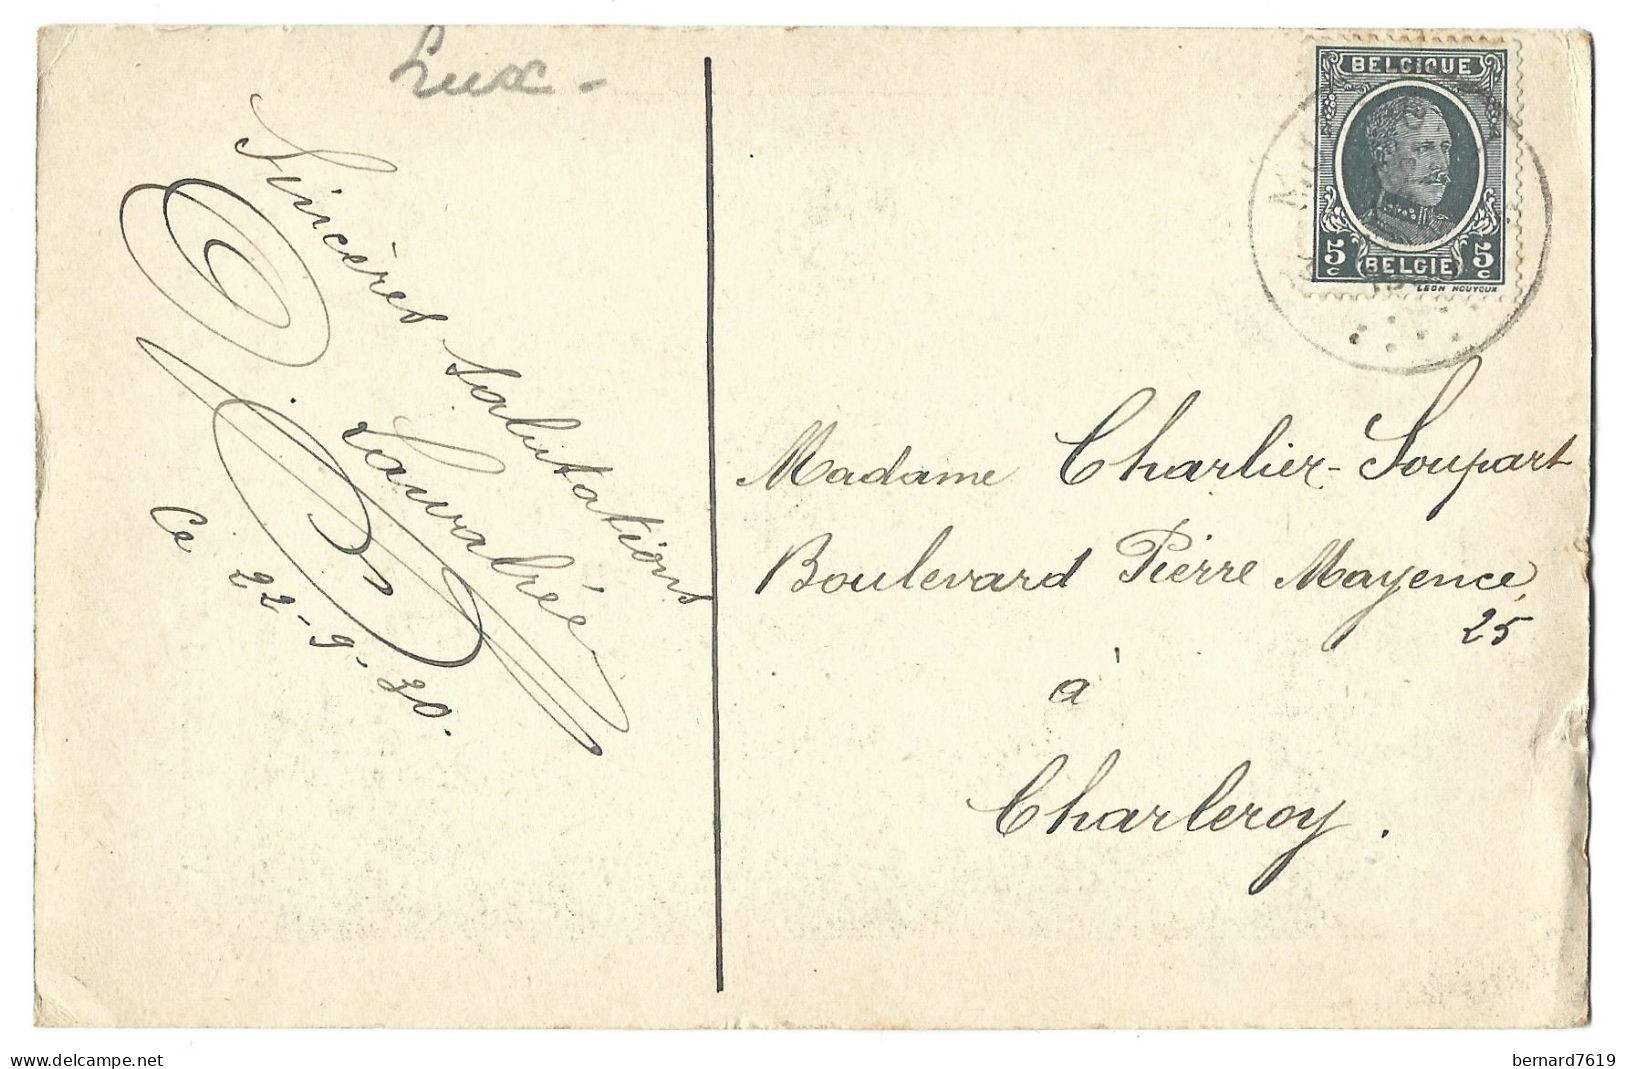 Lux -
Sincères salutations
Lauvabrée
Ce 22-9-30.
BELGIQUE
5c 5c
BELGIE
LEON HOUYOUX
Madame Charlier-Soupart
Boulevard Pierre Mayence,
25
à
Charleroy.
www.delcampe.net
bernard7619